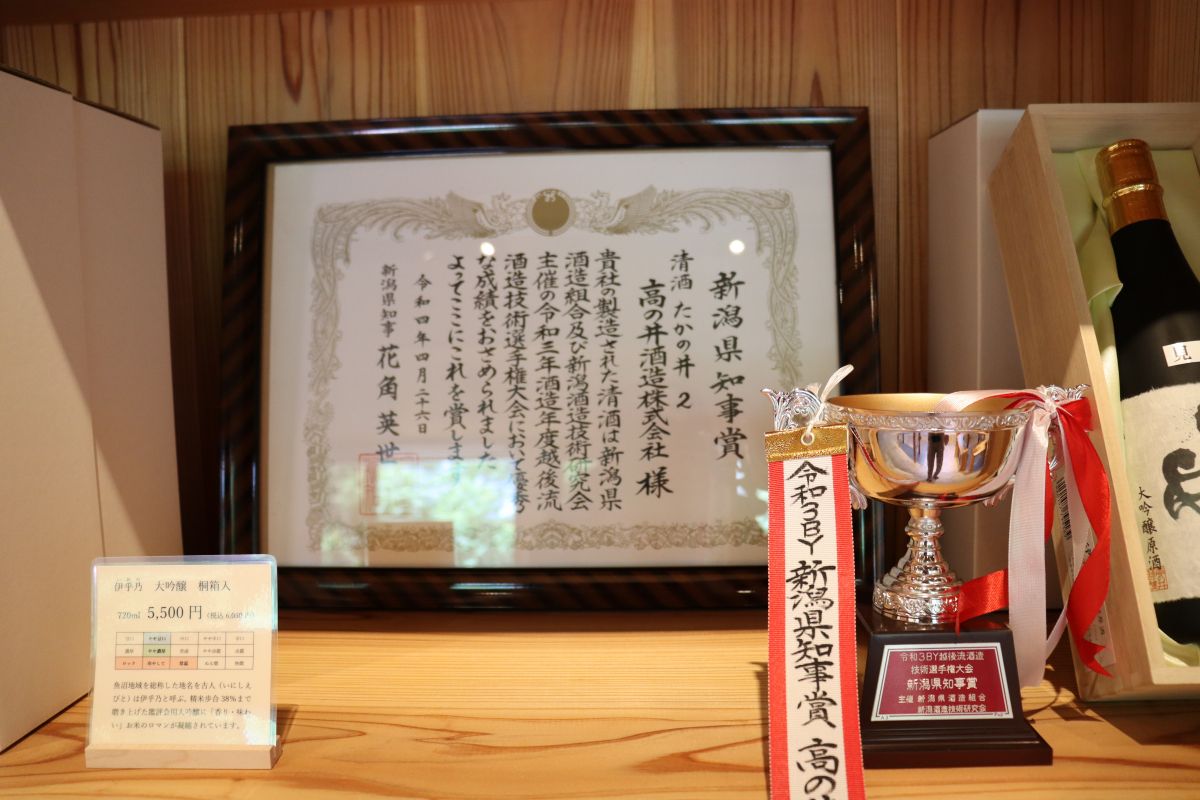 新潟県知事賞
清酒 たかの井 2
高の井酒造株式会社 様
貴社の製造された清酒は新潟県
酒造組合及び新潟酒造技術研究会
主催の令和三年酒造年度越後流
酒造技術選手権大会において優秀
な成績をおさめられました
よってここにこれを賞します
令和四年四月二十六日
新潟県知事 花角英世
令和3BY 新潟県知事賞 高の井
令和3BY越後流酒造
技術選手権大会
新潟県知事賞
主催 新潟県酒造組合
新潟酒造技術研究会
大吟醸原酒
伊乎乃 大吟醸 桐箱入
720ml 5,500円(税込 6,050円)
魚沼地域を総称した地名を古人(いにしえ
びと)は伊乎乃と呼ぶ。精米歩合38%まで
磨き上げた鑑評会用大吟醸に「香り・味わ
い」お米のロマンが凝縮されています。